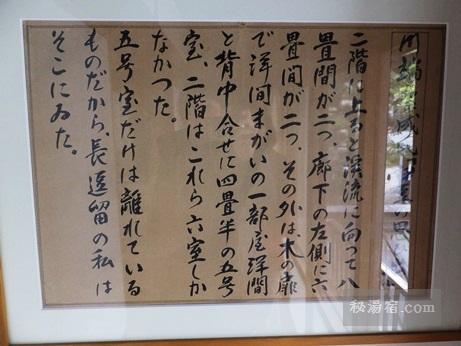 川端 成
二階に上ると渓流に向つて八
畳間が二つ、廊下の左側に六
畳間が二つ、その外は、木の扉
で洋間まがいの一部屋洋間
と背中合せに四畳半の五号
室、二階はこれら六室しか
なかつた。
五号室だけは離れている
ものだから、長逗留の私は
そこにゐた。
秘湯宿.com